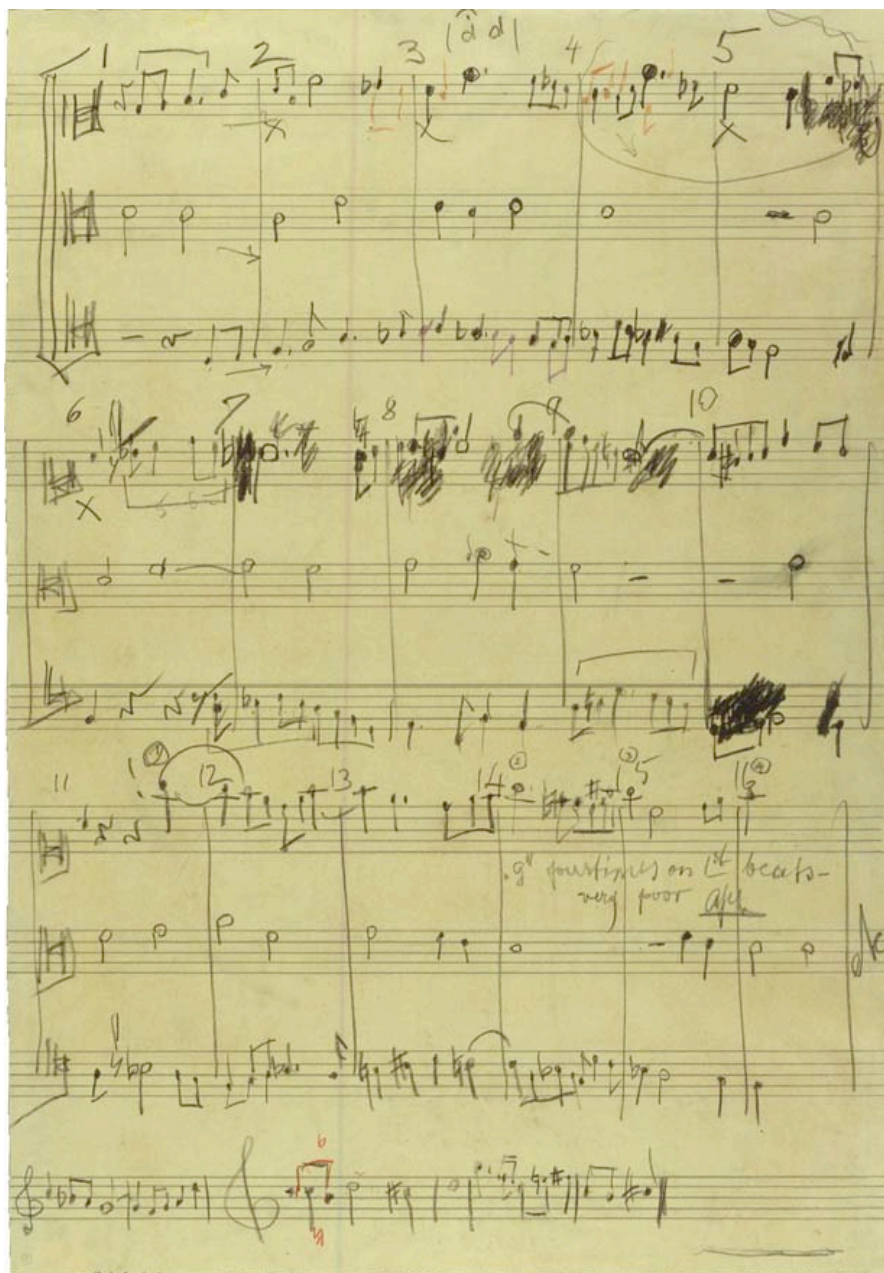 1 2 3 4 5
6 7 8 9 10
11 12 13 14 15 16
"g" four times on 1st beats –
very poor